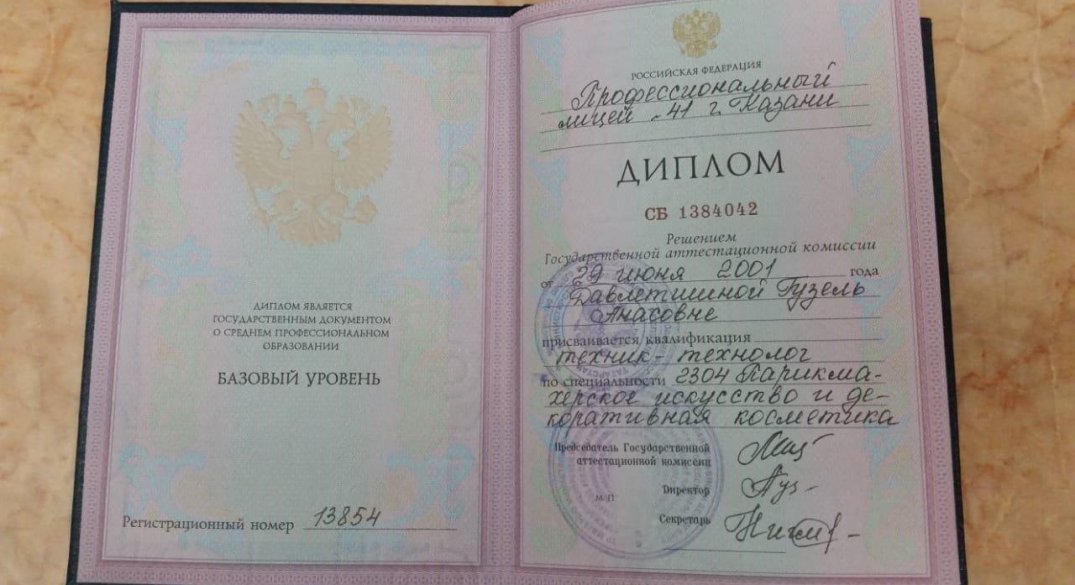 ДИПЛОМ ЯВЛЯЕТСЯ
ГОСУДАРСТВЕННЫМ ДОКУМЕНТОМ
О СРЕДНЕМ ПРОФЕССИОНАЛЬНОМ
ОБРАЗОВАНИИ
БАЗОВЫЙ УРОВЕНЬ
Регистрационный номер 13854
РОССИЙСКАЯ ФЕДЕРАЦИЯ
Профессиональный
лицей 41 г. Казани
ДИПЛОМ
СБ 1384042
Решением
Государственной аттестационной комиссии
от 29 июня 2001 года
Давлетшиной Гузель
Анасовне
присваивается квалификация
техник-технолог
по специальности 2304 Парикма-
херское искусство и де-
коративная косметика
Председатель Государственной
аттестационной комиссии
Директор
М.П.
Секретарь